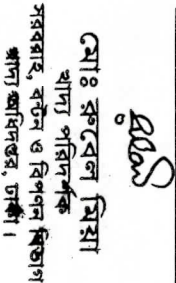 মোঃ রুবেল মিয়া
খাদ্য পরিদর্শক
সরবরাহ, বণ্টন ও বিপণন বিভাগ
খাদ্য অধিদপ্তর, ঢাকা।